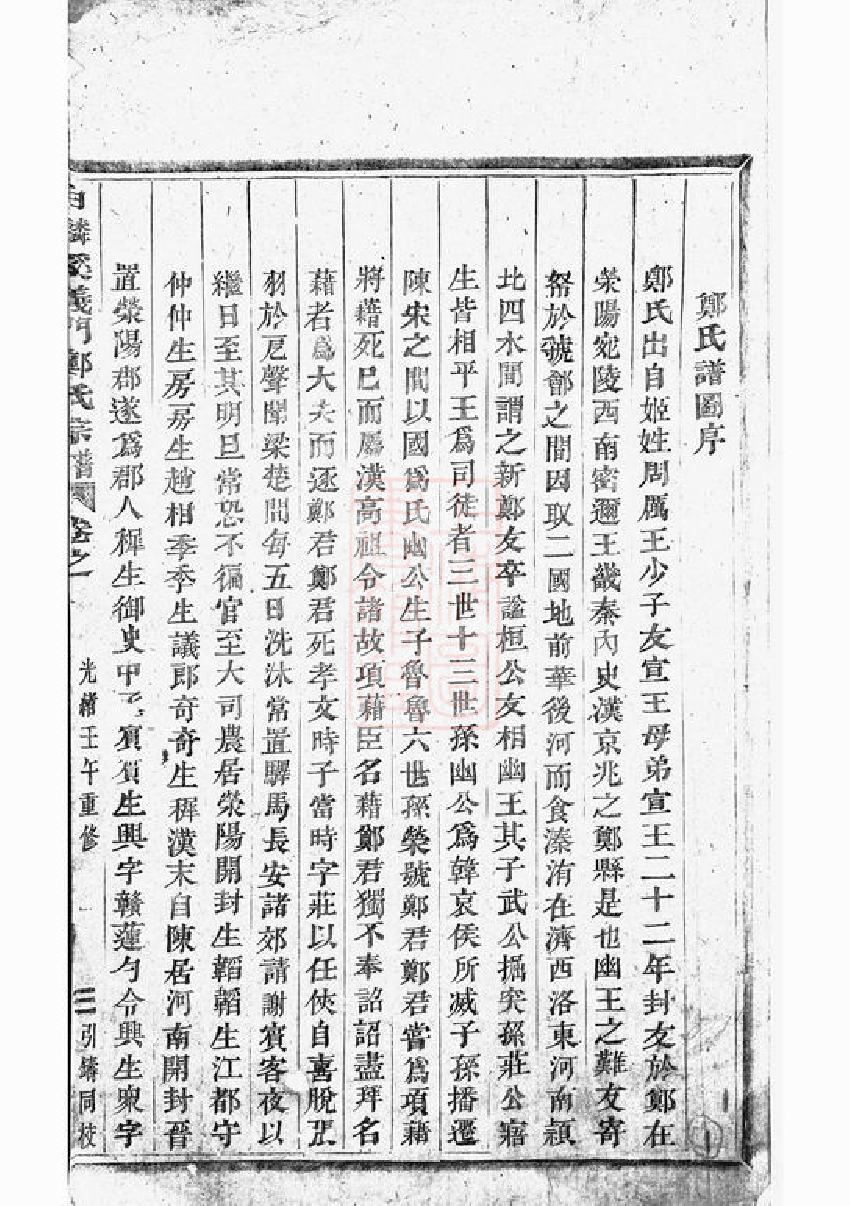 鄭氏譜圖序
鄭氏出自姬姓周厲王少子友宣王母弟宣王二十二年封友於鄭在
滎陽宛陵西南密邇王畿秦內史漢京兆之鄭縣是也幽王之難友寄
帑於虢鄶之間因取二國地前華後河而食溱洧在濟西洛東河南潁
北四水間謂之新鄭友卒謚桓公友相幽王其子武公掘突孫莊公寤
生皆相平王爲司徒者三世十三世孫幽公爲韓哀侯所滅子孫播遷
陳宋之間以國爲氏幽公生子魯魯六世孫榮號鄭君鄭君嘗爲項藉
將藉死巳而屬漢高祖令諸故項藉臣名藉鄭君獨不奉詔詔盡拜名
藉者爲大夫而逐鄭君鄭君死孝文時子當時字莊以任俠自喜脫張
羽於戹聲聞梁楚間每五日洗沐常置驛馬長安諸郊請謝賓客夜以
繼日至其明旦常恐不徧官至大司農居滎陽開封生韜韜生江都守
仲仲生房房生趙相季季生議郎奇奇生穉漢末自陳居河南開封晉
置滎陽郡遂爲郡人穉生御史中丞賓賓生興字贛蓮勺令興生衆字
白麟溪義門鄭氏宗譜圖卷之一
光緒壬午重修
三
引緒同校